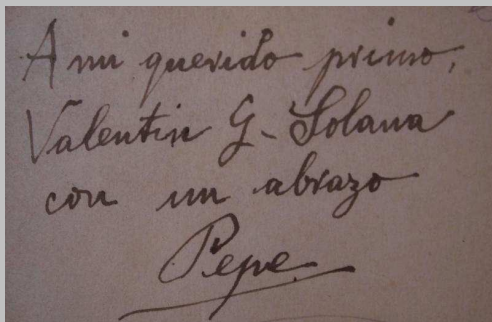 A mi querido primo,
Valentin G. Solana
con un abrazo
Pepe